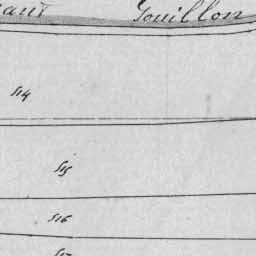 Gouillon
514
515
516
517